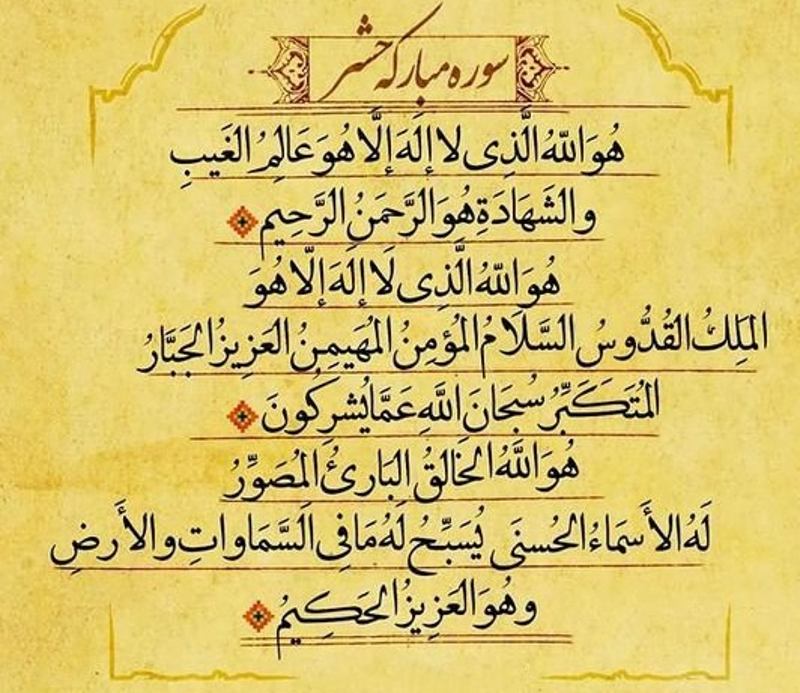 سوره مبارکه حشر
هُوَ اللّٰهُ الَّذِی لا إِلَهَ إِلَّا هُوَ عَالِمُ الغَیبِ
والشَهَادَةِ هُوَ الرَّحمَنُ الرَّحِیم
هُوَ اللّٰهُ الَّذِی لَا إِلَهَ إِلَّا هُوَ
المَلِكُ القُدُّوسُ السَّلَامُ المُؤمِنُ المُهَیمِنُ العَزِیزُ الجَبَّارُ
المُتَكَبِّرُ سُبحَانَ اللَّهِ عَمَّا یُشرِكُونَ
هُوَ اللَّهُ الخَالِقُ البَارِئُ المُصَوِّرُ
لَهُ الأَسمَاءُ الحُسنَی یُسَبِّحُ لَهُ مَا فِی السَّمَاواتِ والأَرضِ
وهُوَ العَزِیزُ الحَكِیمُ